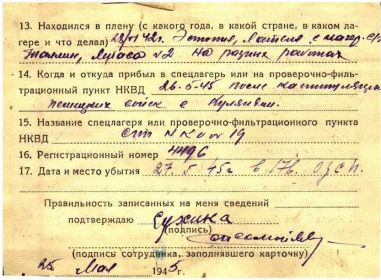 13. Находился в плену (с какого года, в какой стране, в каком ла-
гере и что делал) 42г. Эстония, Латвия с
№2 на разных работах
14. Когда и откуда прибыл в спецлагерь или на проверочно-филь-
трационный пункт НКВД 26-5-45 после капитуляции
немецких войск с
15. Название спецлагеря или проверочно-фильтрационного пункта
НКВД 19
16. Регистрационный номер
17. Дата и место убытия 27. 5 45г в 176. О.З.С.П.
Правильность записанных на меня сведений
подтверждаю Сухина
(подпись)
(подпись сотрудника, заполнявшего карточку)
25 Мая 1945г.